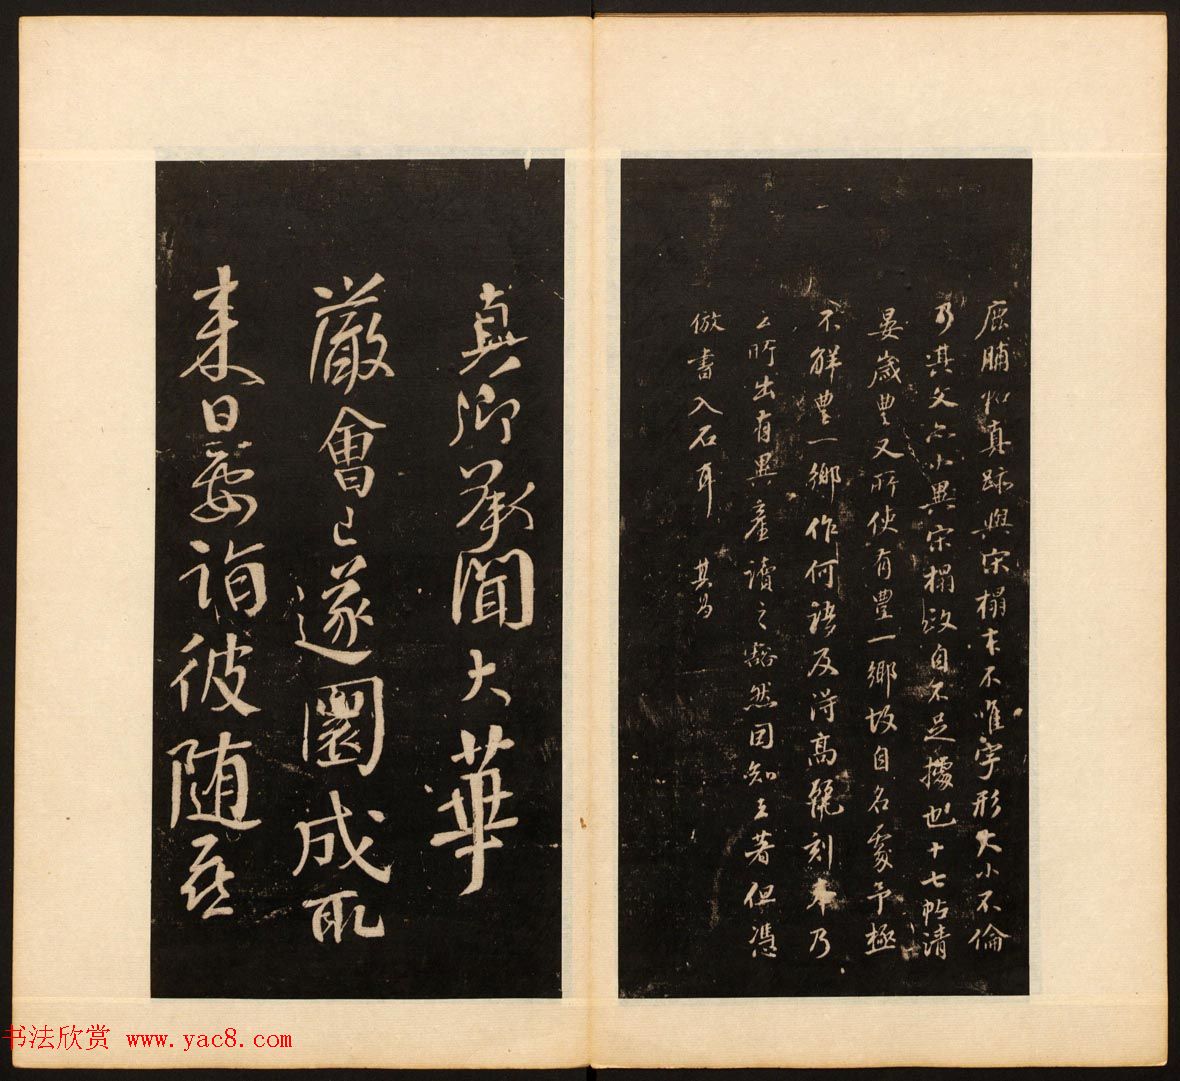 鹿脯帖真跡與宋榻本不唯字形大小不倫
乃其文亦小異宋榻政自不足據也十七帖清
晏歲豐又所使有豐一鄉故自名處予極
不解豐一鄉作何語及得高麗刻本乃
云所出有異產讀之豁然因知王著但憑
倣書入石耳 其昌
真卿承聞大華
嚴會已遂圓成取
來日要詣彼隨喜
书法欣赏 www.yac8.com